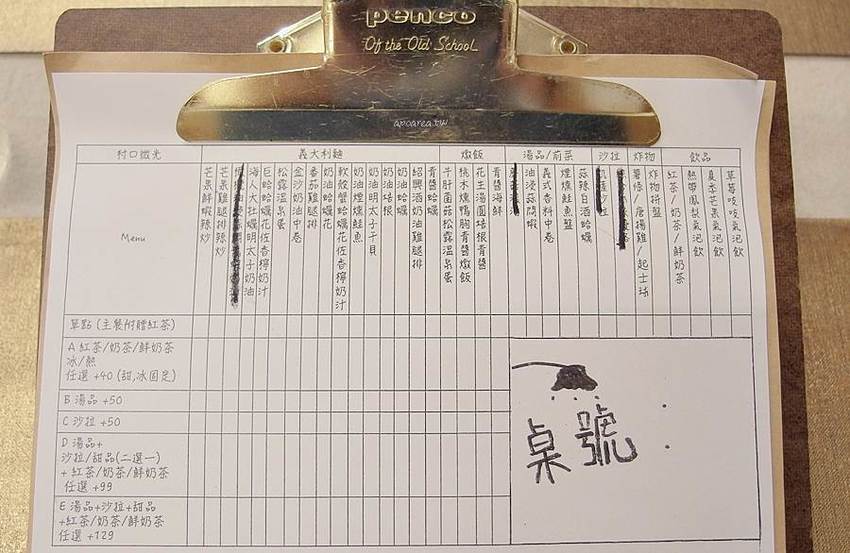 penco
Of the Old School
apoarea.tw
村口微光
義大利麵
燉飯
湯品/前菜
沙拉
炸物
飲品
Menu
芒果鮮蝦辣炒
芒果雞腿排辣炒
海人大牡蠣明太子奶油
巨蛤蛤蠣花佐香檸奶汁
松露溫泉蛋
金沙奶油中卷
番茄雞腿排
軟殼蟹蛤蠣花佐香檸奶汁
奶油蛤蠣花
奶油煙燻鮭魚
奶油明太子干貝
奶油培根
奶油蛤蠣
紹興酒奶油雞腿排
青醬蛤蠣
牛肝菌菇松露溫泉蛋
桃木燻鴨胸青醬燉飯
花生湯圓培根青醬
青醬海鮮
油浸蒜悶蝦
義式香料中卷
煙燻鮭魚盤
蒜辣白酒蛤蠣
凱薩沙拉
薯條/唐揚雞/起士球
炸物拼盤
紅茶/奶茶/鮮奶茶
熱帶鳳梨氣泡飲
夏季芒果氣泡飲
草莓吱吱氣泡飲
單點 (主餐附贈紅茶)
A 紅茶/奶茶/鮮奶茶
冰/熱
任選 +40 (甜,冰固定)
B 湯品 +50
C 沙拉 +50
D 湯品+
沙拉/甜品(二選一)
+ 紅茶/奶茶/鮮奶茶
任選 +99
E 湯品+沙拉+甜品
+紅茶/奶茶/鮮奶茶
任選 +129
桌號